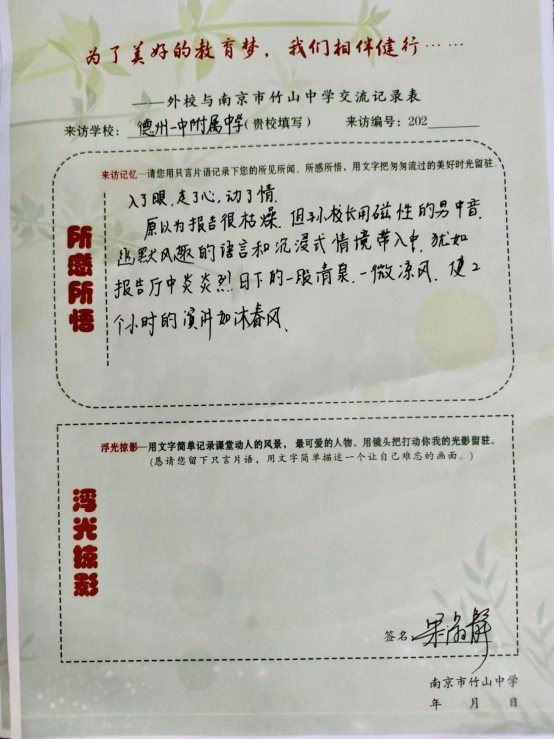 为了美好的教育梦，我们相伴健行……
——外校与南京市竹山中学交流记录表
来访学校：德州一中附属中学(贵校填写) 来访编号：202
来访记忆—请您用只言片语记录下您的所见所闻、所感所悟，用文字把匆匆流过的美好时光留驻。
所感所悟
入了眼，走了心，动了情.
原以为报告很枯燥.但孙校长用磁性的男中音.
幽默风趣的语言和沉浸式情境带入中.犹如
报告厅中炎炎烈日下的一股清泉.一微凉风.使2
个小时的演讲如沐春风.
浮光掠影—用文字简单记录课堂动人的风景，最可爱的人物。用镜头把打动你我的光影留驻。
(恳请您留下只言片语，用文字简单描述一个让自己难忘的画面。)
浮光掠影
签名：
南京市竹山中学
年 月 日